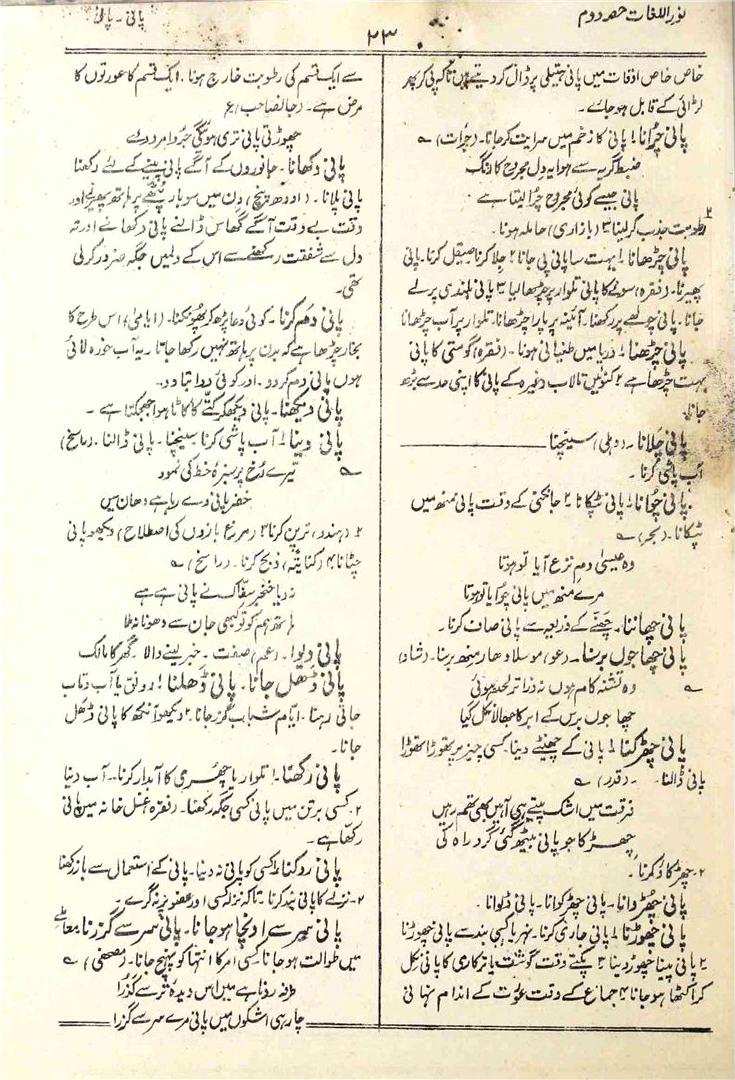 نور اللغات حصہ دوم
۲۳
پانی - پانی
خاص خاص اوقات میں پانی ہتیلی پر ڈال کر دیتے ہیں تاکہ پی کر پھر
لڑائی کے قابل ہو جائے۔
پانی چرانا! پانی کا زخم میں سرایت کرجانا۔ (جرات) ے
ضبط گریہ سے ہوا یہ دل مجروح کا رنگ
پانی جیسے کوئی مجروح چرا لیتا ہے
۲ رطوبت جذب کرلینا ۳ (بازاری) حاملہ ہونا۔
پانی چڑھانا! بہت سا پانی پی جانا ۲ جِلا کرنا صیقل کرنا۔ پانی
پھیرنا۔ (فقرہ) سونے کا پانی تلوار پر چڑھا لیا ۳ پانی بلندی پر لے
جانا۔ پانی چولھے پر رکھنا۔ آئینہ پر پارا چڑھانا۔ تلوار پر آب چڑھانا
پانی چڑھنا! دریا میں طغیانی ہونا۔ (فقرہ) گومتی کا پانی
بہت چڑھا ہے ۲ کنوئیں تالاب وغیرہ کے پانی کا اپنی حد سے بڑھ
جانا۔
پانی چلانا۔ (دہلی) سینچنا
آب پاشی کرنا۔
پانی چُوانا۔ پانی ٹپکانا ۲ جانکنی کے وقت پانی منھ میں
ٹپکانا۔ (بحر) ے
وہ عیسیٰ دم نزع آیا تو ہوتا
مرے منھ میں پانی چوایا تو ہوتا
پانی چھاننا۔ چھنّے کے ذریعہ سے پانی صاف کرنا۔
پانی چھاجوں برسنا۔ (عو) موسلا دھار منھ برسنا۔ (شاد)
ے وہ تشنہ کام ہوں نہ ذرا تر لحد ہوئی
چھاجوں برس کے ابر کا چھالا نکل گیا
پانی چھڑکنا! پانی کے چھینٹے دینا۔ کسی چیز پر تھوڑا تھوڑا
پانی ڈالنا۔ (قدر) ے
فرقت میں اشک پیتے ہی آہیں بھی تھم رہیں
چھڑکا جو پانی بیٹھ گئی گرد راہ کی
۲۔ چھڑکاؤ کرنا۔
پانی چھڑوانا۔ پانی چھڑکوانا۔ پانی ڈلوانا۔
پانی چھوڑنا! پانی جاری کرنا۔ نہر یا کسی بند سے پانی چھوڑنا
۲ پانی پینا چھوڑ دینا ۳ پکتے وقت گوشت یا ترکاری کا پانی نکل
کر اکٹھا ہو جانا ۴ جماع کے وقت عورت کے اندام نہانی
سے ایک قسم کی رطوبت خارج ہونا۔ ایک قسم کا عورتوں کا
مرض ہے۔ (جانصاحب) ع
چھوڑتی پانی تری ہونگی جُروا مردوے
پانی دکھانا۔ جانوروں کے آگے پانی پینے کے لئے رکھنا
پانی پلانا۔ (اودھ پنچ) دن میں سو بار پٹھے پر ہاتھ پھیرنے اور
وقت بے وقت آگے گھاس ڈالنے پانی دکھانے اور تہ
دل سے شفقت رکھنے سے اس کے دلمیں جگہ ضرور کرلی
تھی۔
پانی دم کرنا۔ کوئی دعا پڑھ کر پھونکنا۔ (ایامیٰ) اس طرح کا
بخار چڑھا ہے کہ بدن پر ہاتھ نہیں رکھا جاتا۔ یہ آب خورہ لائی
ہوں پانی دم کردو۔ اور کوئی دوا بتا دو۔
پانی دیکھنا۔ پانی دیکھکر کتّے کا کاٹا ہوا جھجکتا ہے۔
پانی دینا! آب پاشی کرنا سینچنا۔ پانی ڈالنا۔ (ناسخ)
ے تیرے رخ پر سبزۂ خط کی نمود
خضر پانی دے رہا ہے دھان میں
۲ (ہندو) ترپن کرنا ۳ (مرغ بازوں کی اصطلاح) دیکھو پانی
چٹانا ۴ (کنایتہً) ذبح کرنا۔ (راسخ) ے
نہ دیا خنجر سفّاک نے پانی ہے ہے
ہاتھ ہم کو تو کبھی جان سے دھونا نہ ملا
پانی دیوا۔ (عم) صفت۔ خبر لینے والا۔ گھر کا مالک
پانی ڈھل جانا۔ پانی ڈھلنا! رونق یا آب و تاب
جاتی رہنا۔ ایّام شباب گزر جانا ۲ دیکھو آنکھ کا پانی ڈھل
جانا۔
پانی رکھنا۔! تلوار یا چھری کا آبدار کرنا۔ آب دینا
۲۔ کسی برتن میں پانی کسی جگہ رکھنا۔ (فقرہ) غسل خانہ میں پانی
رکھا ہے۔
پانی روکنا! کسی کو پانی نہ دینا۔ پانی کے استعمال سے باز رکھنا
۲۔ نزلے کا پانی بند کرنا۔ تاکہ نزلہ کسی اور عضو پر نہ گرے۔
پانی سر سے اونچا ہو جانا۔ پانی سر سے گزرنا۔ معاملے
میں طوالت ہو جانا کسی امر کا انتہا کو پہنچ جانا۔ (مصحفی) ے
طرفہ رونا ہے میں اس دیدۂ تر سے گزرا
چار ہی اشکوں میں پانی مرے سر سے گزرا